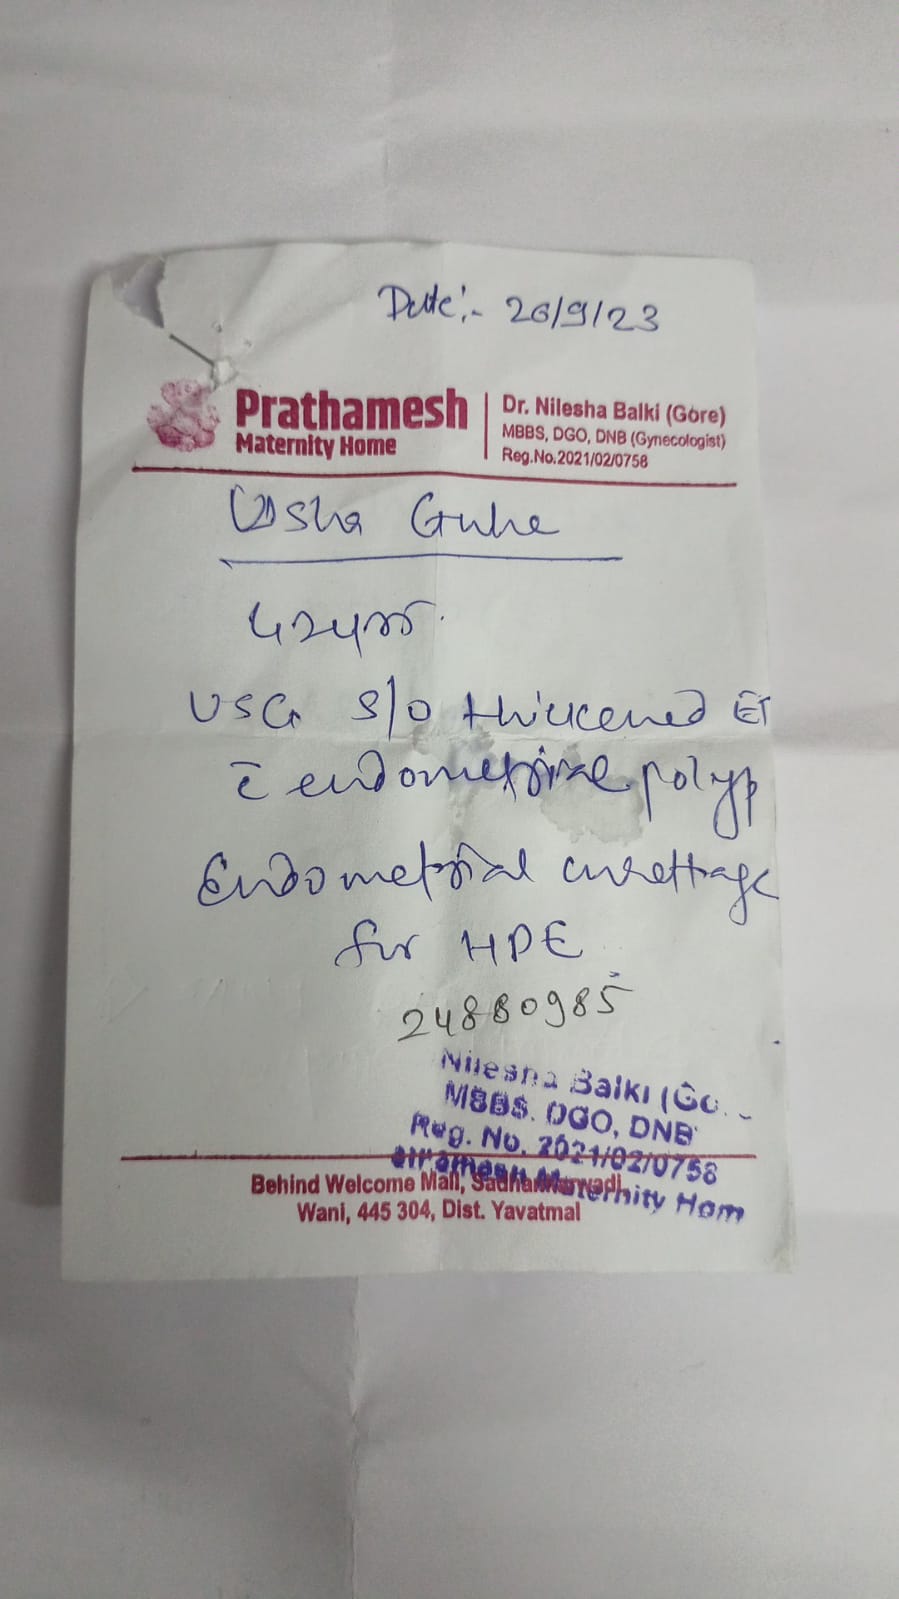 Date:- 26/9/23
Prathamesh
Maternity Home
Dr. Nilesha Balki (Gore)
MBBS, DGO, DNB (Gynecologist)
Reg.No.2021/02/0758
Usha Guhe
USG S/O thickened ET
c̄ endometrial polyp
Endometrial curettage
for HPE
24880985
Nilesha Balki (Go
MBBS. DGO, DNB
Reg. No. 2021/02/0758
Maternity Hom
Behind Welcome Mall,
Wani, 445 304, Dist. Yavatmal